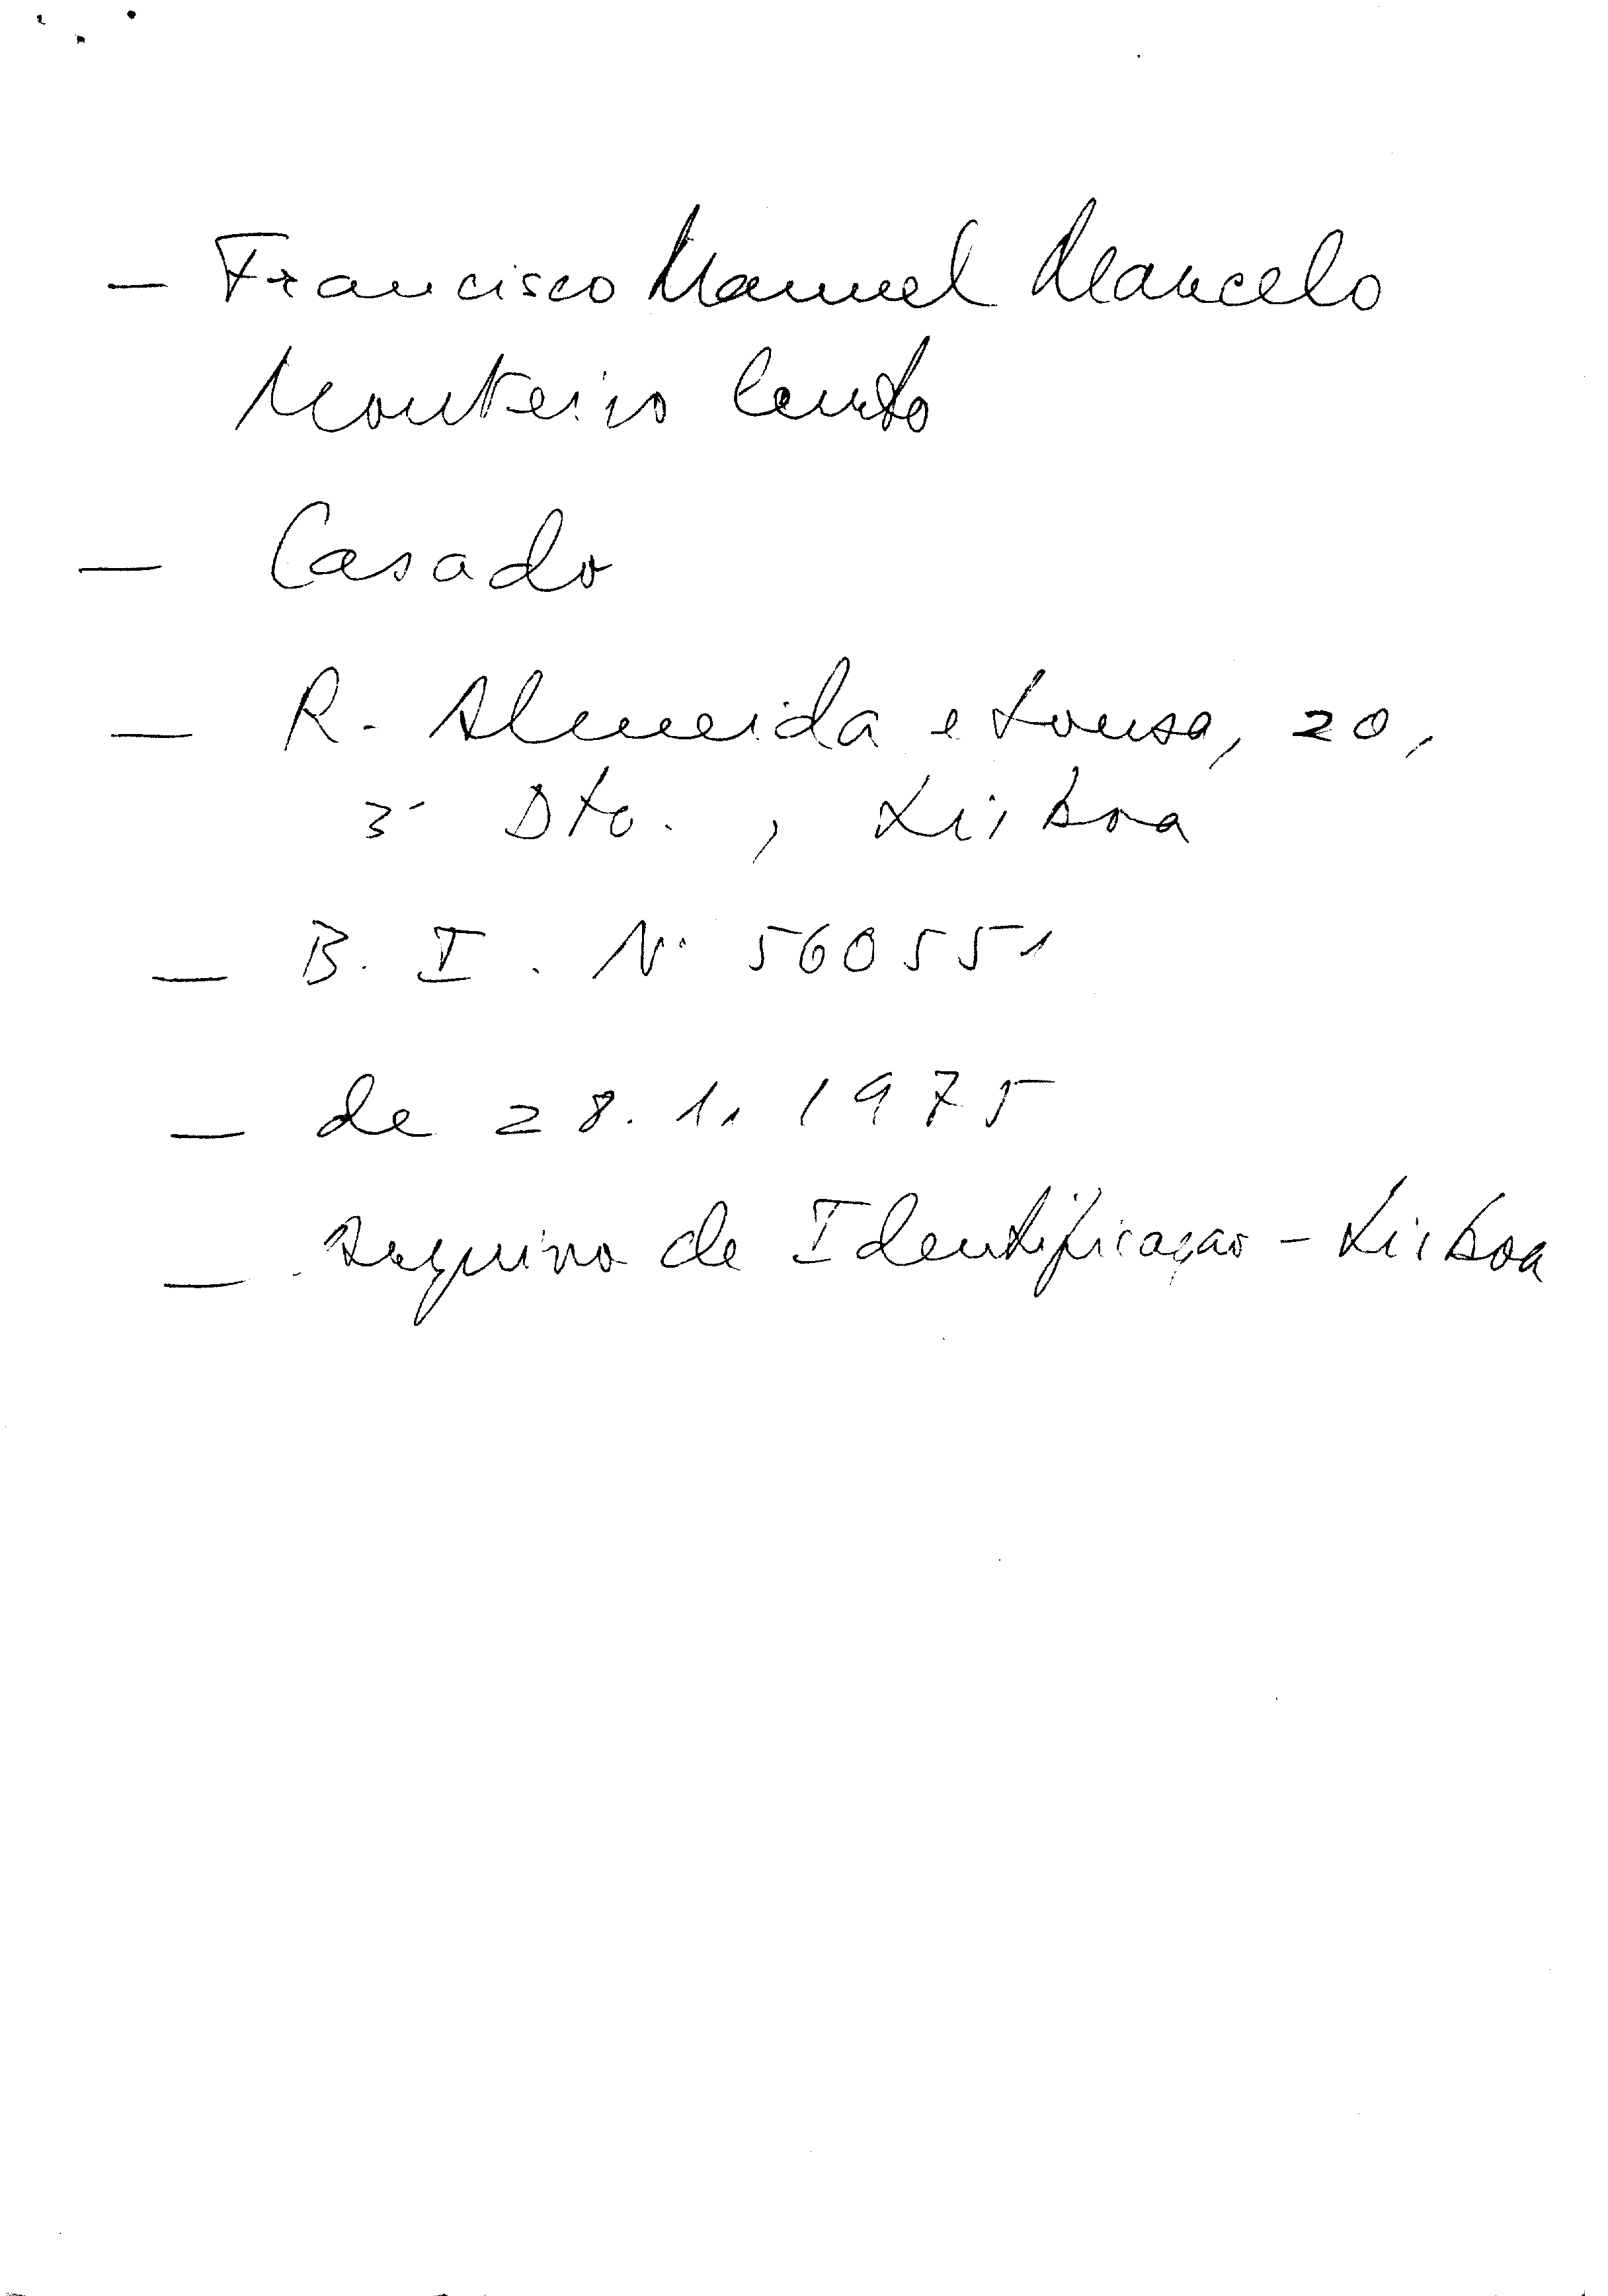 — Francisco Manuel Marcelo
Monteiro Curto
— Casado
— R. Almeida e Sousa, 20,
3º Dto., Lisboa
— B. I. Nº 560551
— de 28.1.1975
— Arquivo de Identificação - Lisboa